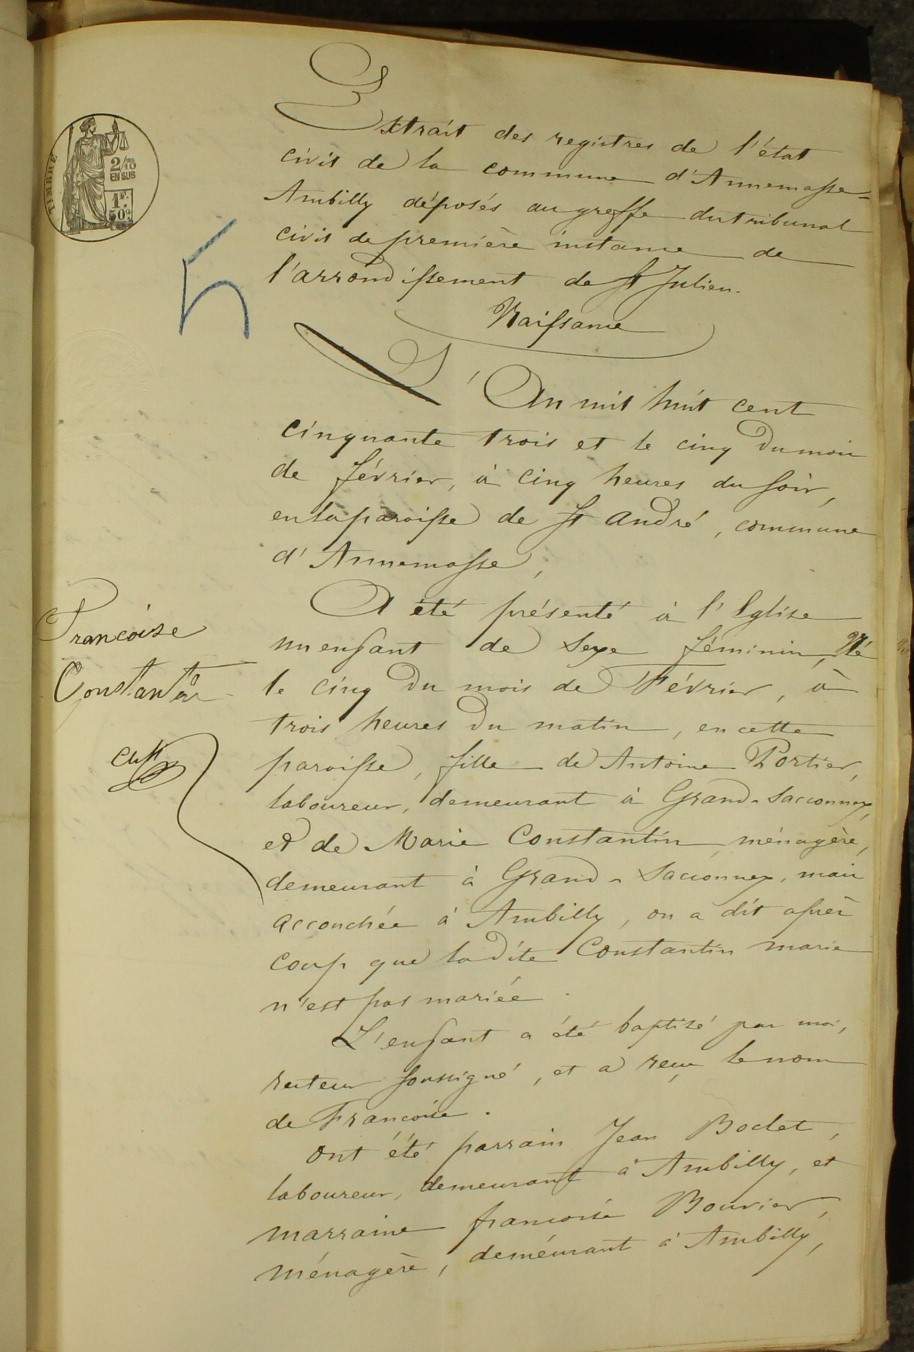 TIMBRE
2/10
EN SUS
1F.
50c.
5
Extrait des registres de l'état
civil de la commune d'Annemasse-
Ambilly déposés au greffe du tribunal
civil de première instance de
l'arrondissement de St Julien.
Naissance
L'An mil huit cent
cinquante trois et le cinq du mois
de février, à cinq heures du soir,
en la paroisse de St André, commune
d'Annemasse,
A été présenté à l'Eglise
un enfant de sexe féminin, Né
le cinq du mois de Février, à
trois heures du matin, en cette
paroisse, fille de Antoine Portier,
laboureur, demeurant à Grand-Sacconnex,
et de Marie Constantin, ménagère,
demeurant à Grand-Sacconnex, mais
accouchée à Ambilly, on a dit après
coup que ladite Constantin marie
n'est pas mariée.
L'enfant a été baptisé par moi,
recteur soussigné, et a reçu le nom
de Françoise.
Ont été parrain Jean Boclet,
laboureur, demeurant à Ambilly, et
marraine françoise Bouvier,
ménagère, demeurant à Ambilly,
Françoise
Constantin